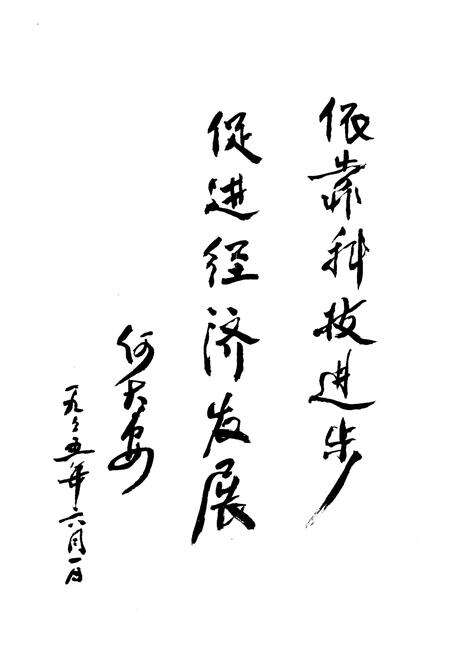 依靠科技进步
促进经济发展
何大
一九々五年六月一日